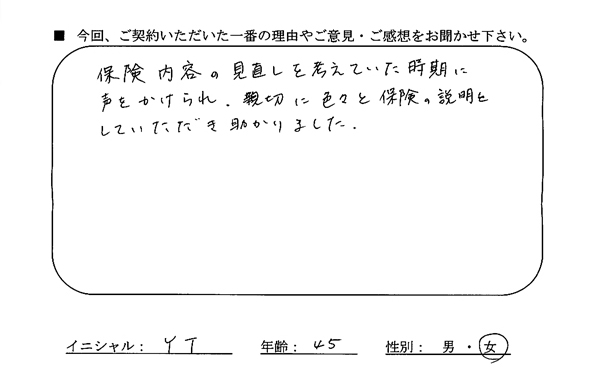 ■ 今回、ご契約いただいた一番の理由やご意見・ご感想をお聞かせ下さい。
保険内容の見直しを考えていた時期に
声をかけられ、親切に色々と保険の説明を
していただき助かりました.
イニシャル： YT 年齢： 45 性別： 男 ・ 女